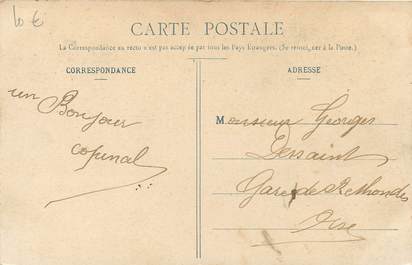 10 €
CARTE POSTALE
La Correspondance au recto n'est pas acceptée par tous les Pays Etrangers. (Se renseigner à la Poste).
CORRESPONDANCE
ADRESSE
un Bonjour
copinal
Monsieur Georges
Dessaint
Gare de Rethondes
Oise